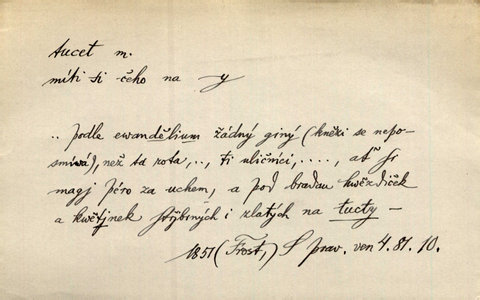 tucet m.
míti si čeho na -y
.. podle ewandělium žádný giný (kněži se nepo-
smíwá), než ta rota, .., ti uličníci, ...., ať si
magj péro za uchem, a pod bradau hwězdiček
a kwětjnek střjbrných i zlatých na tucty —
1851 (Frost,) S prav. ven 4.81.10.